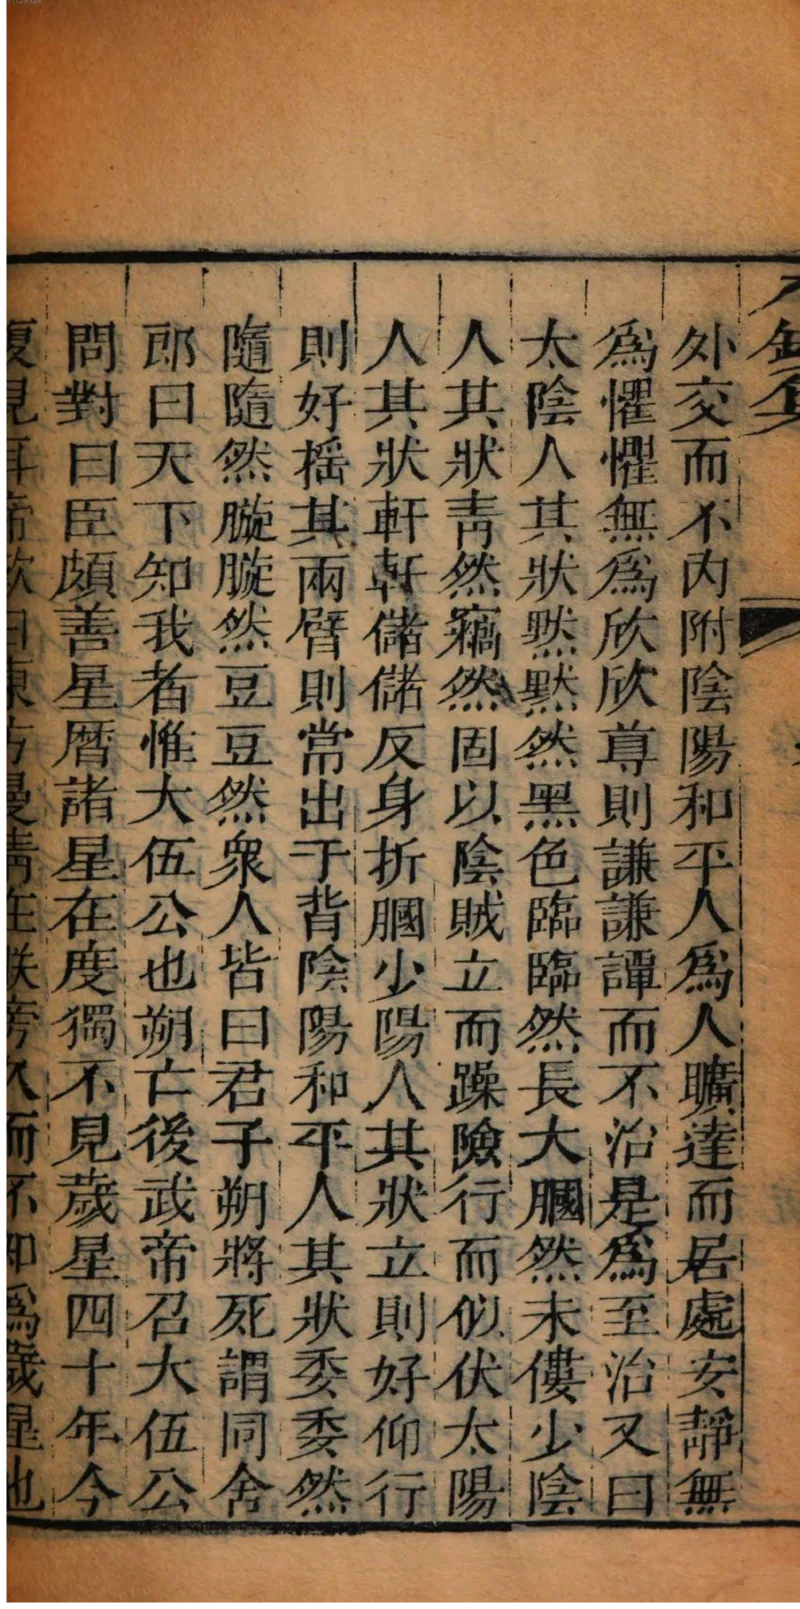 外交而不内附陰陽和平人爲人曠達而居處安靜無
爲懼懼無爲欣欣尊則謙謙譚而不治是爲至治又曰
太陰人其狀黙黙然黑色臨臨然長大膕然未僂少陰
人其狀青然竊然固以陰賊立而躁險行而似伏太陽
人其狀軒軒儲儲反身折膕少陽人其狀立則好仰行
則好揺其兩臂則常出于背陰陽和平人其狀委委然
隨隨然䁢䁢然豆豆然衆人皆曰君子朔將死謂同舍
郎曰天下知我者惟大伍公也朔亡後武帝召大伍公
問對曰臣頗善星暦諸星在度獨不見歲星四十年今
復見耳帝歎曰東方曼倩在朕旁久而不知爲歲星也